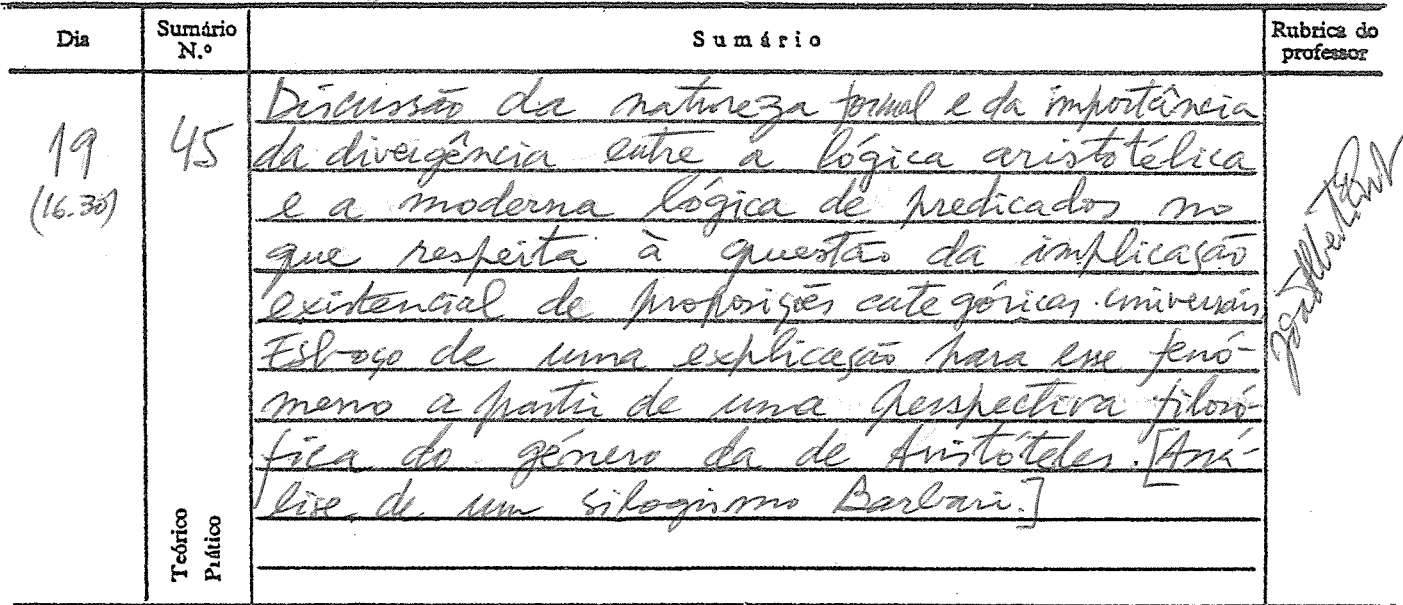 Dia
Sumário N.º
Sumário
Rubrica do professor
19
(16.30)
45
Discussão da natureza formal e da importância
da divergência entre a lógica aristotélica
e a moderna lógica de predicados no
que respeita à questão da implicação
existencial de proposições categóricas universais.
Esboço de uma explicação para esse fenó-
meno a partir de uma perspectiva filosó-
fica do género da de Aristóteles. [Aná-
lise de um silogismo Barbari.]
Teórico
Prático